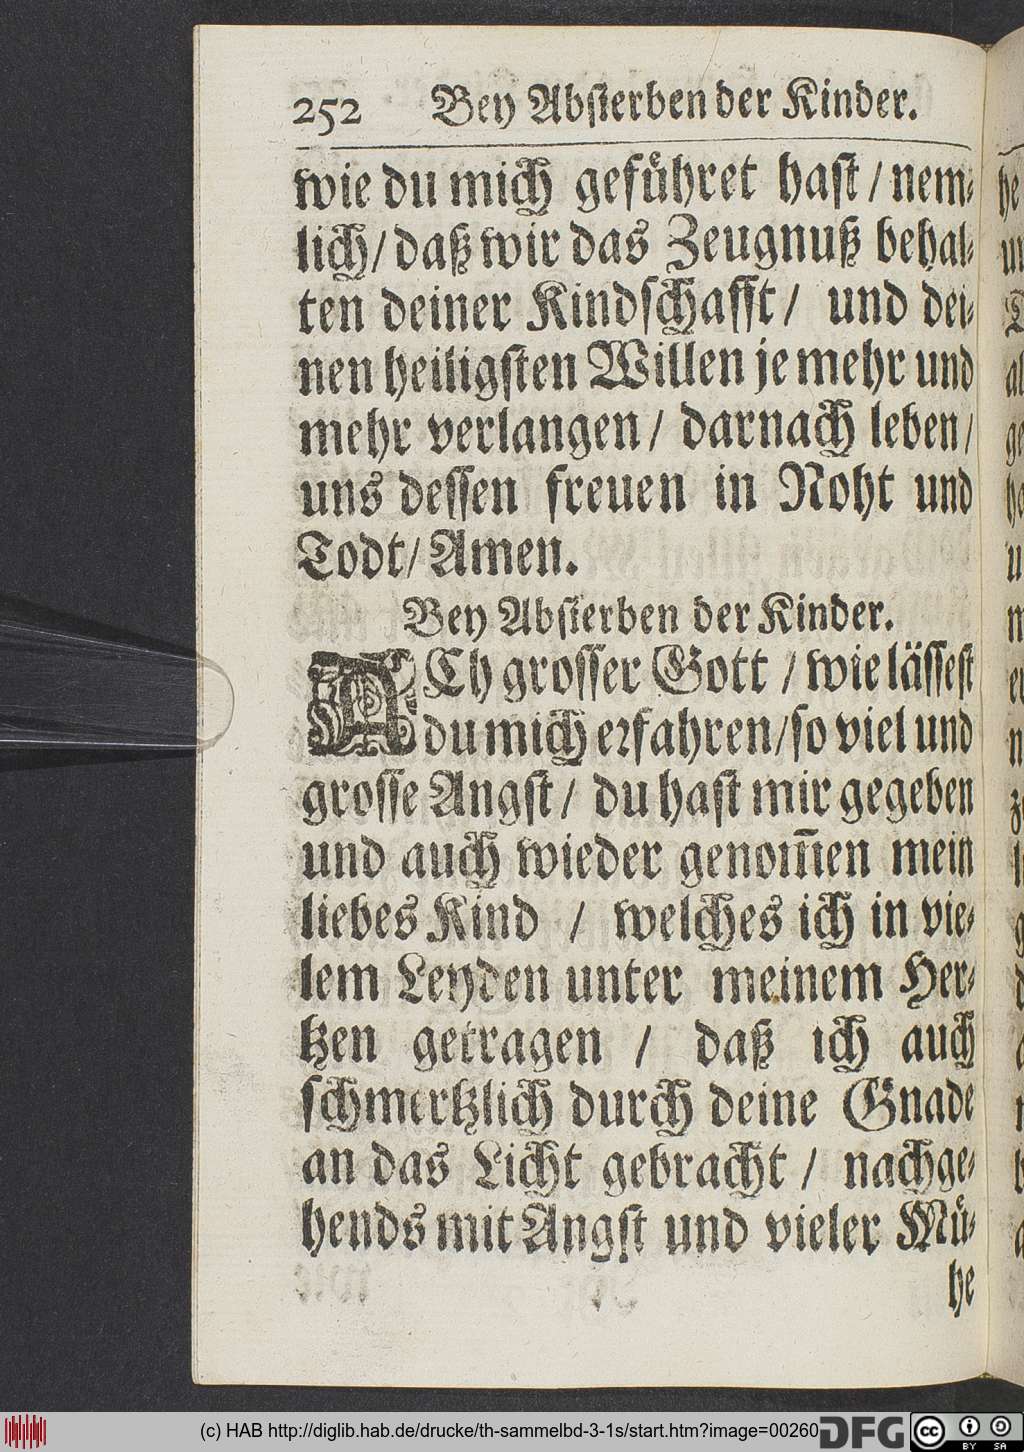 252 Bey Absterben der Kinder.
wie du mich geführet hast / nem-
lich / daß wir das Zeugnuß behal-
ten deiner Kindschafft / und dei-
nen heiligsten Willen je mehr und
mehr verlangen / darnach leben /
uns dessen freuen in Noht und
Todt / Amen.
Bey Absterben der Kinder.
ACh grosser Gott / wie lässest
du mich erfahren / so viel und
grosse Angst / du hast mir gegeben
und auch wieder genom̃en mein
liebes Kind / welches ich in vie-
lem Leyden unter meinem Her-
tzen getragen / daß ich auch
schmertzlich durch deine Gnade
an das Licht gebracht / nachge-
hends mit Angst und vieler Mü-
he
(c) HAB http://diglib.hab.de/drucke/th-sammelbd-3-1s/start.htm?image=00260
DFG
cc
BY SA